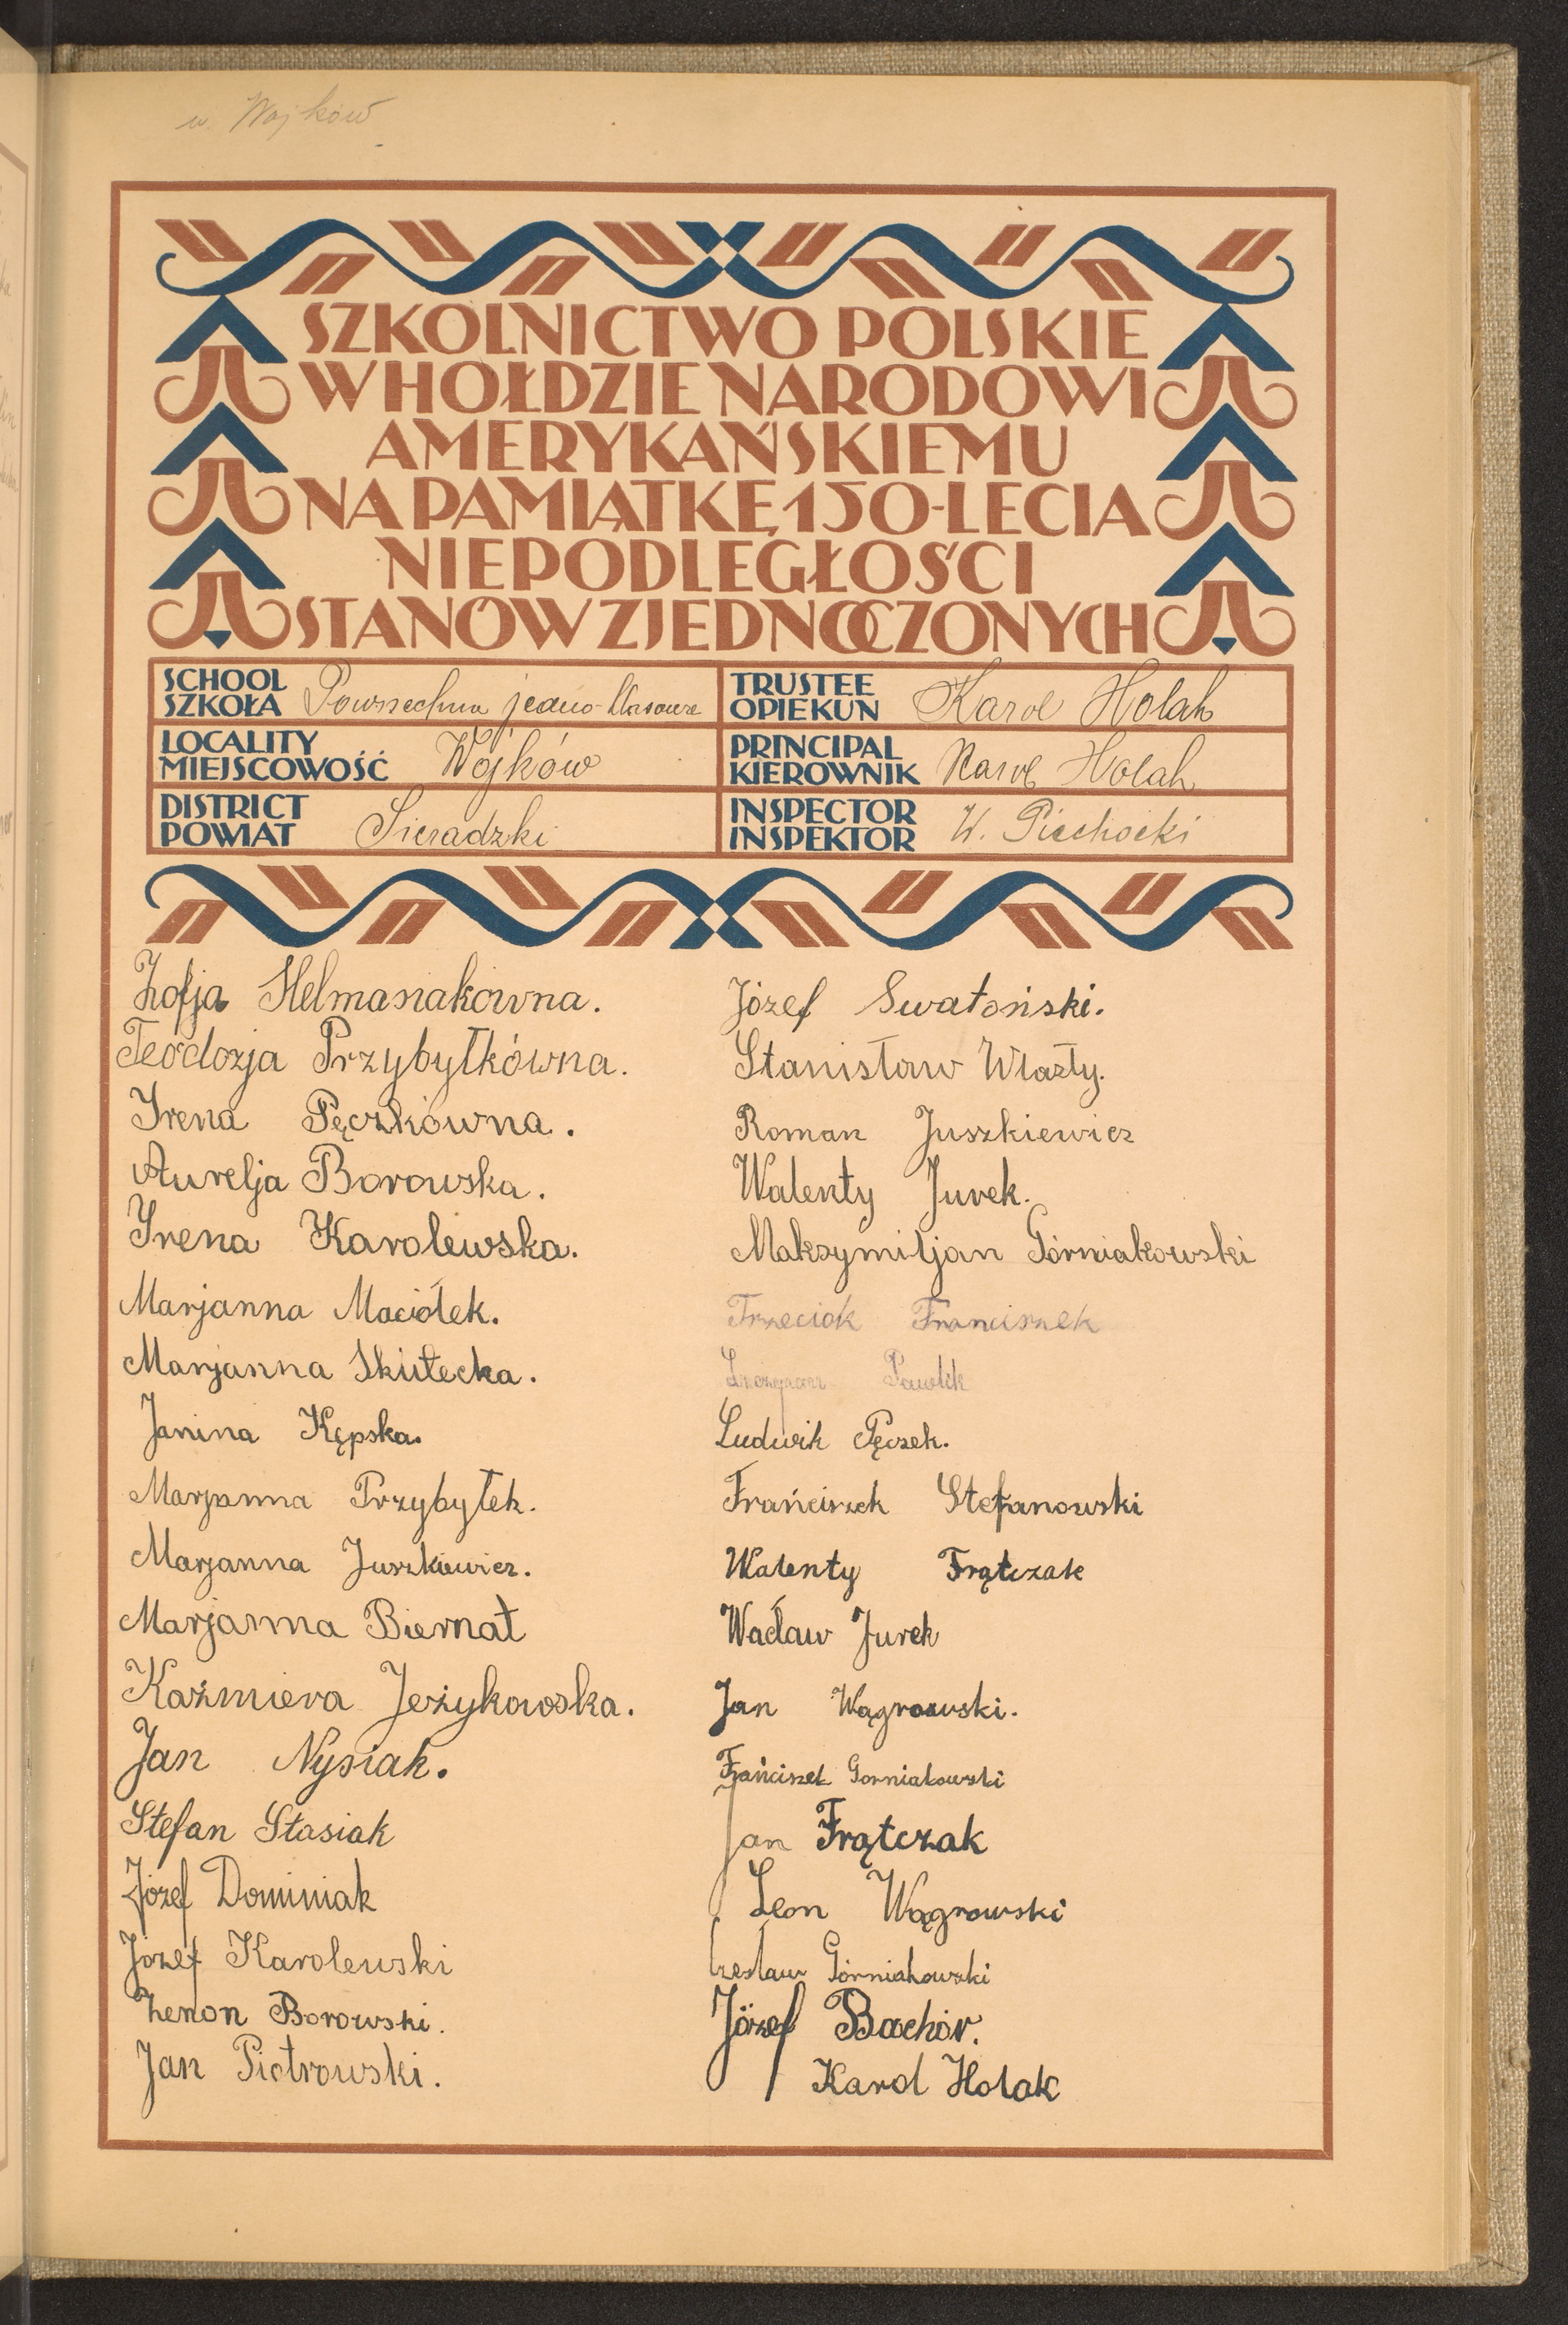 w Wojków
SZKOLNICTWO POLSKIE
W HOŁDZIE NARODOWI
AMERYKAŃSKIEMU
NA PAMIĄTKĘ 150-LECIA
NIEPODLEGŁOŚCI
STANÓW ZJEDNOCZONYCH
SCHOOL
SZKOŁA Powszechna jedno-klasowa
TRUSTEE
OPIEKUN Karol Holak
LOCALITY
MIEJSCOWOŚĆ Wojków
PRINCIPAL
KIEROWNIK Karol Holak
DISTRICT
POWIAT Sieradzki
INSPECTOR
INSPEKTOR W. Piechocki
Zofja Helmaniakówna.
Teodozja Przybyłkówna.
Irena Pęczkówna.
Aurelja Borowska.
Irena Karolewska.
Marjanna Maciołek.
Marjanna Skutecka.
Janina Kępska.
Marjanna Przybyłek.
Marjanna Juszkiewicz.
Marjanna Biernat
Kaźmiera Jeżykowska.
Jan Nysiak.
Stefan Stasiak
Józef Dominiak
Józef Karolewski
Zenon Borowski.
Jan Piotrowski.
Józef Swatoński.
Stanisław Wlazły.
Roman Juszkiewicz
Walenty Jurek.
Maksymiljan Górniakowski
Trzeciak Franciszek
Szczepan Pawlik
Ludwik Pęczek.
Frańciszek Stefanowski
Walenty Frątczak
Wacław Jurek
Jan Wągrowski.
Frańciszek Gorniakowski
Jan Frątczak
Leon Wągrowski
Czesław Górniakowski
Józef Bachór.
Karol Holak